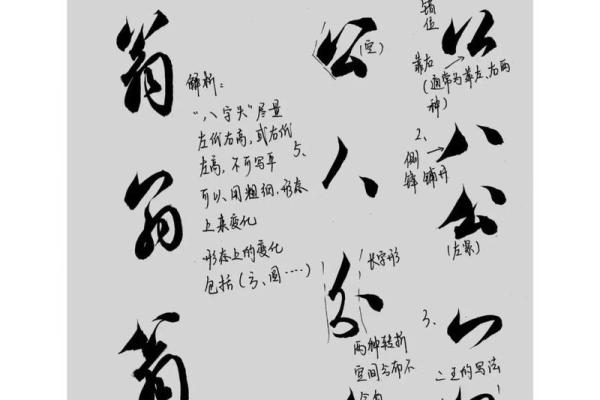 翁
翁
翁
解析：
"八字头"尽量
左低右高，或右低
左高，不可写平
可以用粗细、形态
上来变化
形态上的变化
包括（
5、
公
八
分
长字形
两种转折
空间分布不
错位
公
靠右
（通常为靠左、右两
种）
2、
侧
锋
铺开
八
公
（左紧）
3、
八
二王的写法